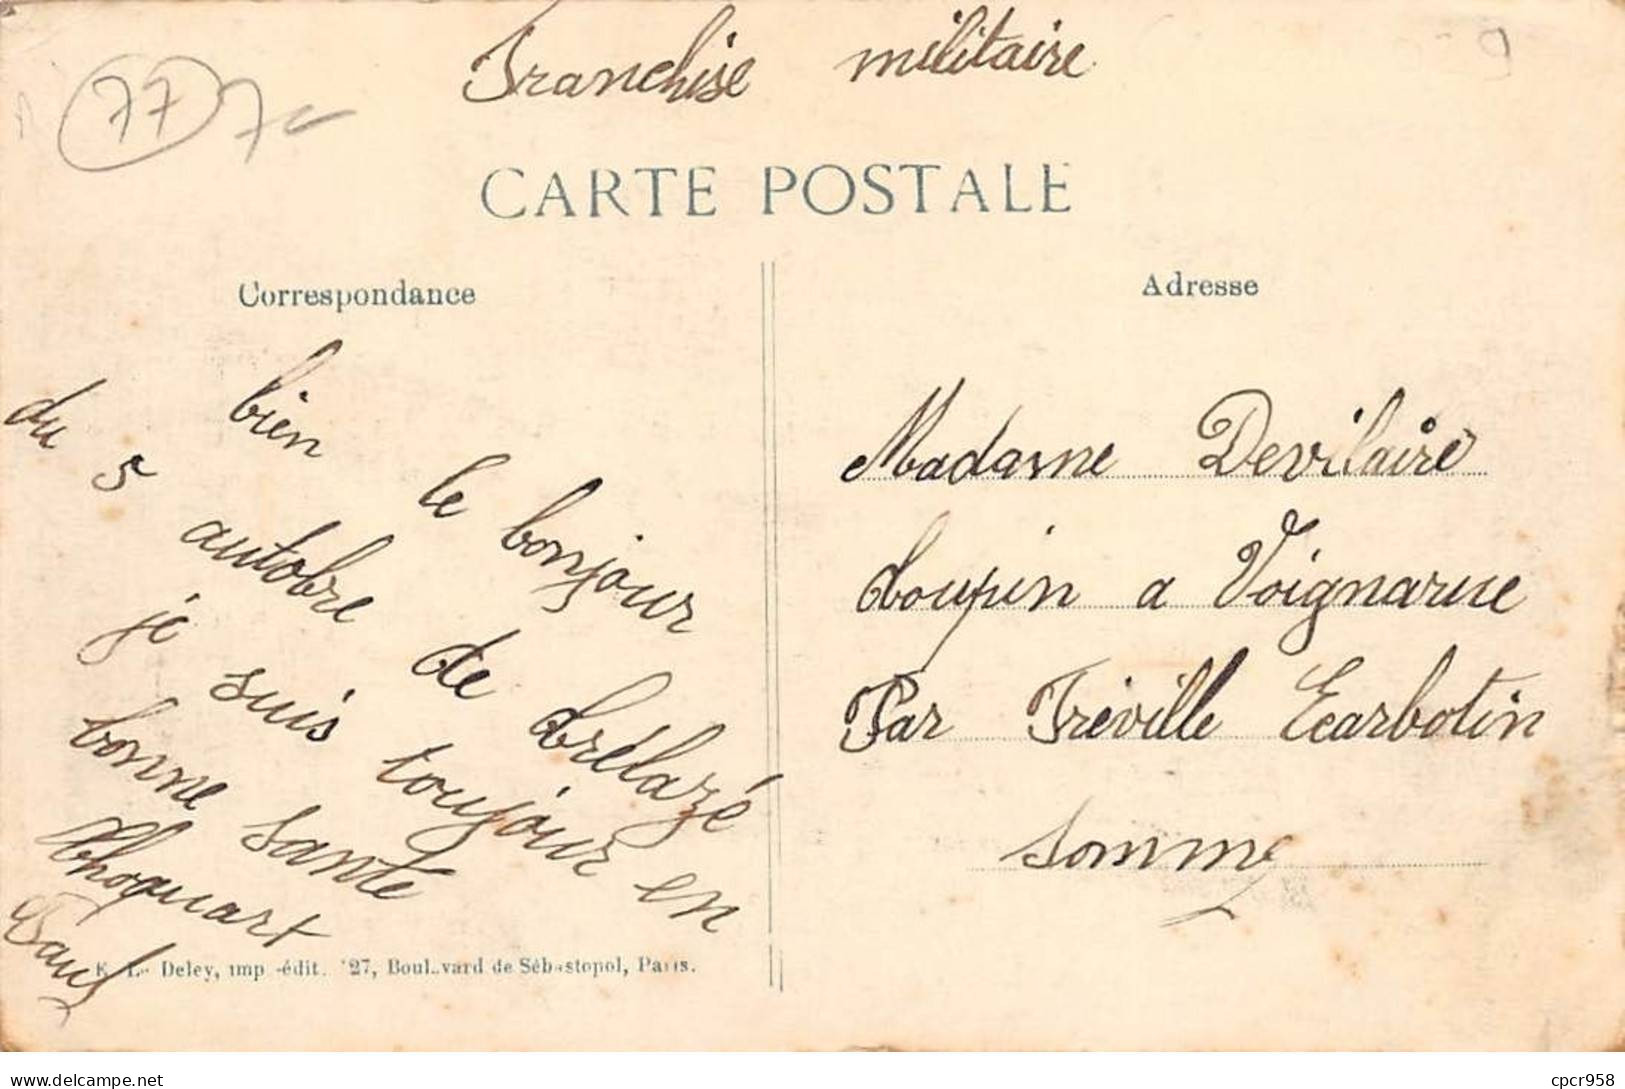 Franchise militaire
77 7c
CARTE POSTALE
Correspondance
Adresse
bien le bonjour
du 5 autobre de drélazé
je suis toujour en
bonne santé
Choquart
Paul
Madame Devilaire
doupin a Voignarue
Par Fréville Ecarbotin
somme
E. L. Deley, imp-édit. 127, Boulevard de Sébastopol, Paris.
delcampe.net
cpcr958